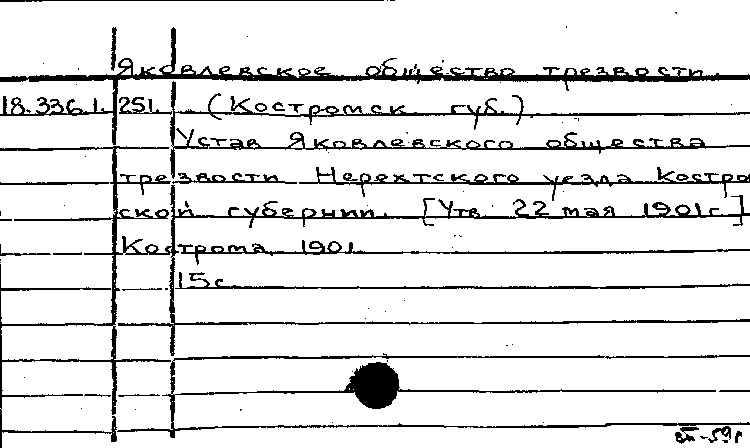 Яковлевское общество трезвости.
18.336.1.251. (Костромск губ.).
Устав Яковлевского общества
трезвости Нерехтского уезда Костро
ской губернии. [Утв. 22 мая 1901 г.]
Кострома, 1901.
15 с.